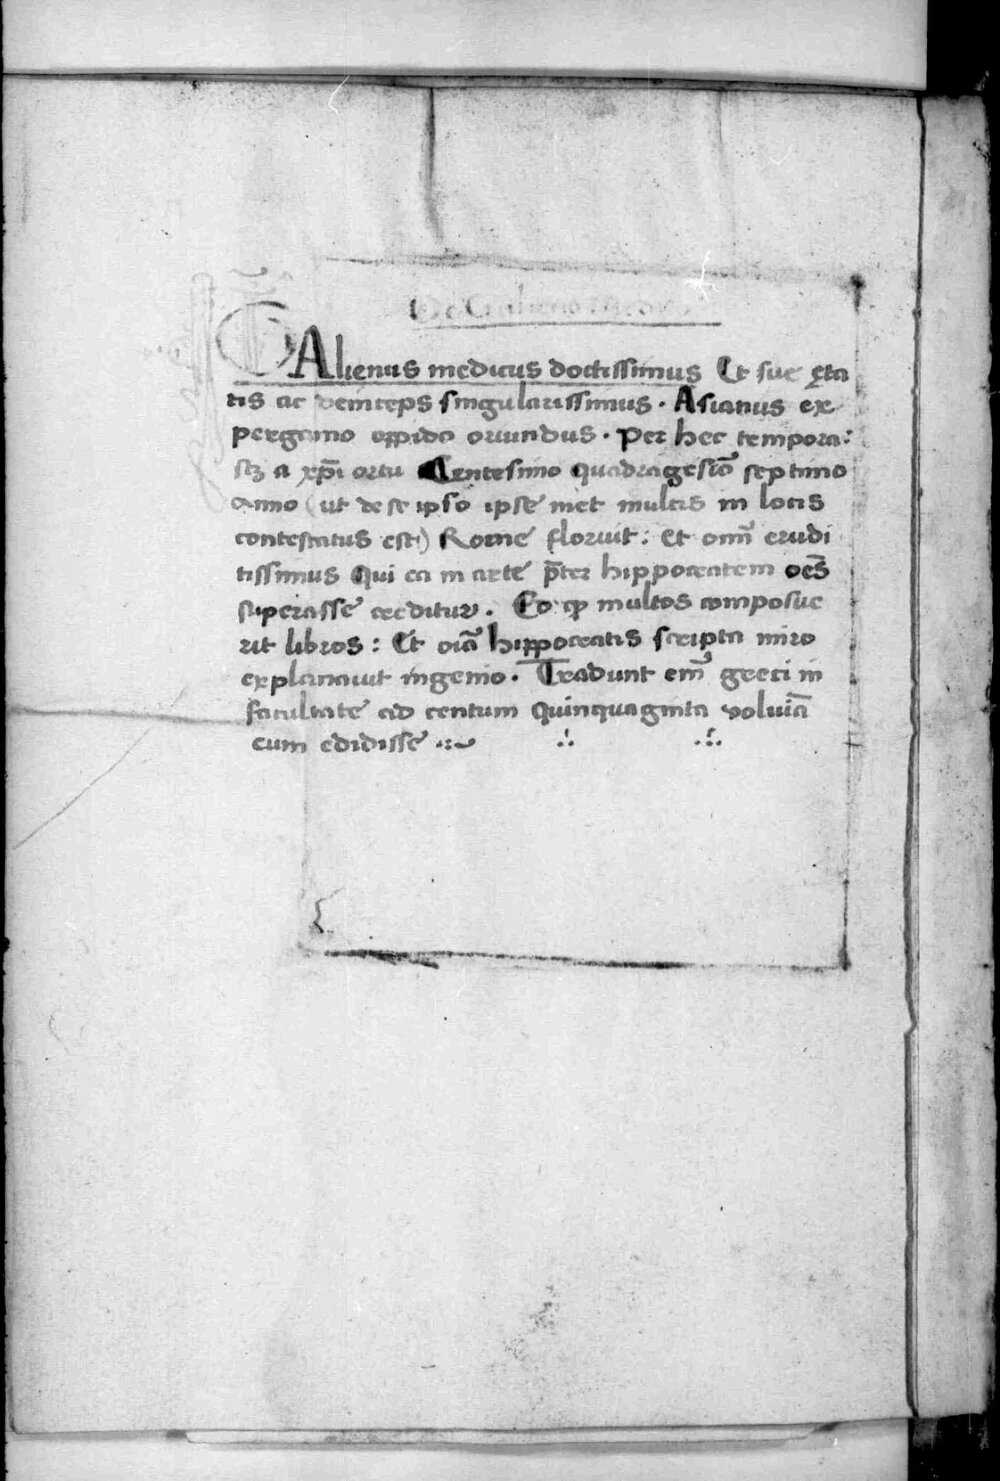 De Galieno Medico
GAlienus medicus doctissimus Et sue ęta
tis ac deinceps singularissimus . Asianus ex
pergamo oppido oriundus . Per hec tempora:
sꝫ a xp̄i ortu Centesimo quadragesiō septimo
anno (ut de se ipso ipse met multis in locis
contestatus est) Rome floruit : Et om̄ erudi
tissimus Qui ea in arte p̄ter hippocratem oēs
superasse creditur . Eo ꝙ multos composue
rit libros : Et oīa hippocratis scripta miro
explanauit ingenio . Tradunt em̄ greci in
facultate ad centum quinquaginta voluīa
eum edidisse